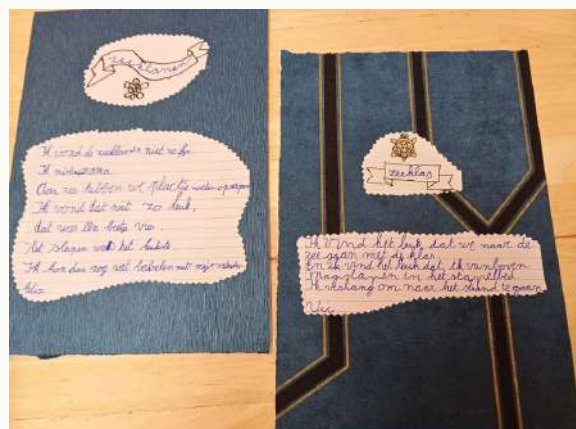 zeeklassen
Ik vond de zeeklassen niet zo fijn.
Ik miste mama.
Aan zee hebben we pluctje moeten oprapen
Ik vond dat niet zo leuk,
dat was een beetje vies.
Het slapen was het leukste.
Ik kon dan nog wat babbelen met mijn vrienden
zeeklas
Ik vind het leuk dat we naar de
zee gaan met de klas.
En ik vind het leuk dat ik vanboven
mag slapen in het stapelbed.
Ik verlang om naar het strand te gaan